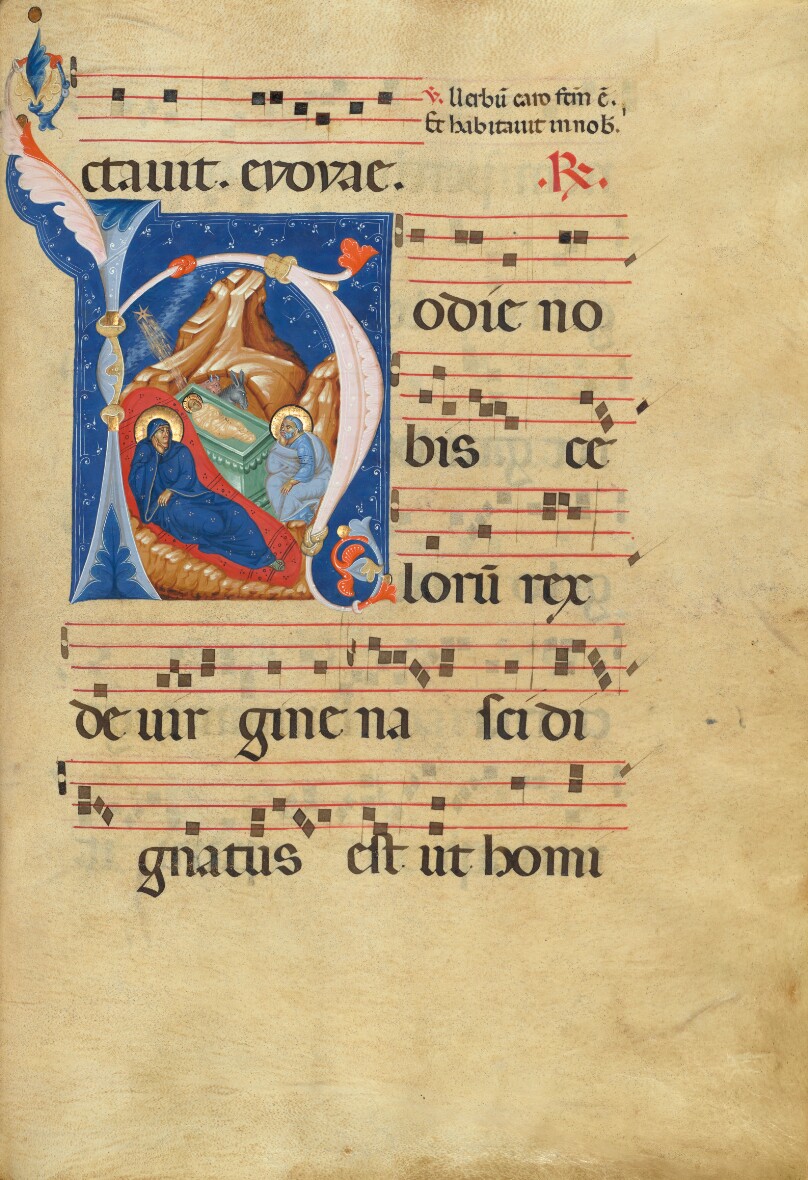 ℣. Uerbū caro fcm̄ ē.
Et habitauit in nob̄.
ctauit. evovae. ℞.
H odie no
bis ce
lorū rex
de uir gine na sci di
gnatus est ut homi